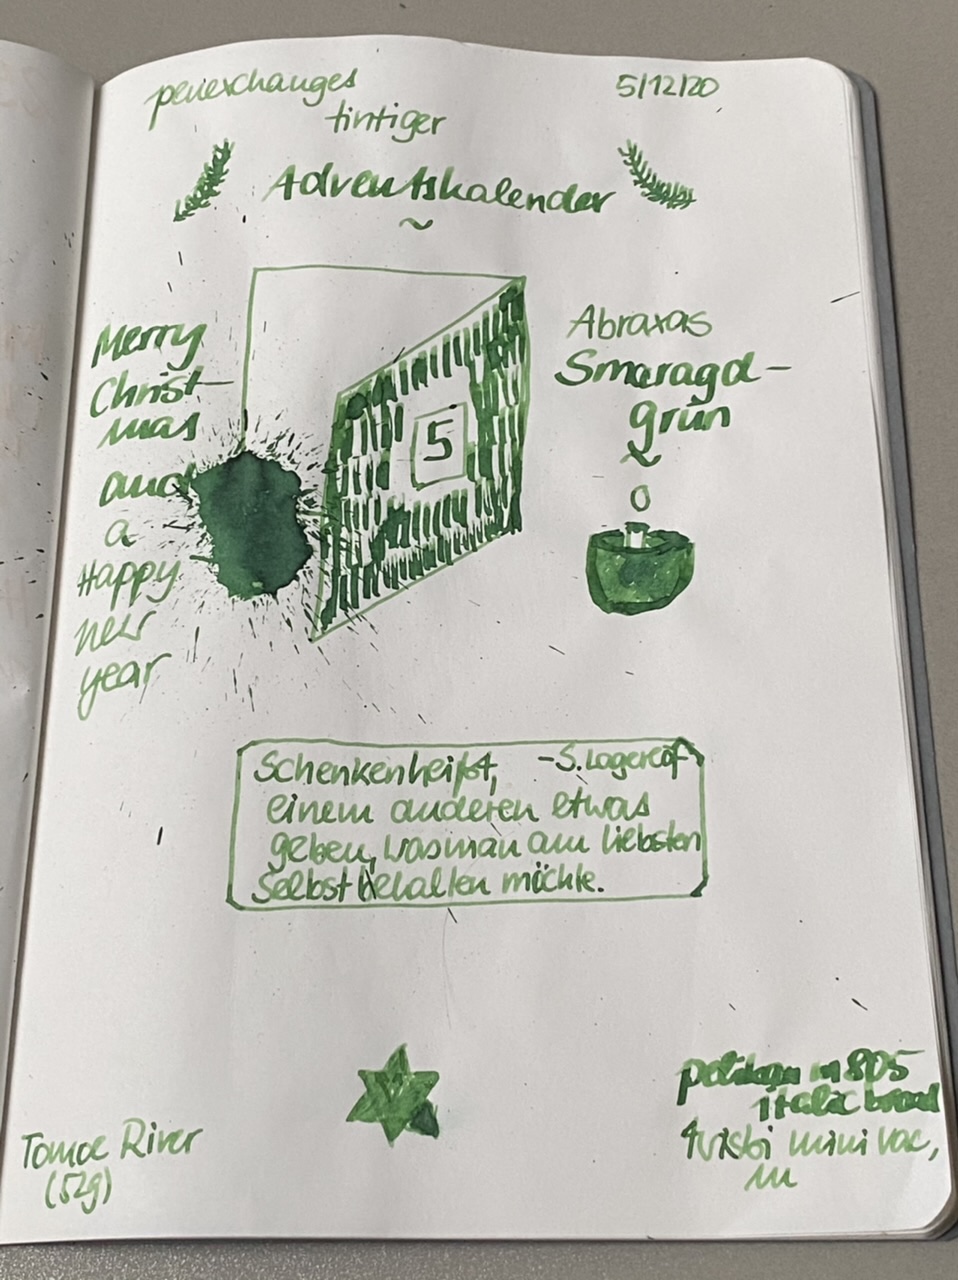 penexchanges
tintiger
5/12/20
Adventskalender
~
Merry
Christ-
mas
and
a
Happy
new
year
5
Abraxas
Smaragd-
grün
~
Schenken heißt, -S. Lagerlöf
einem anderen etwas
geben, was man am liebsten
selbst behalten möchte.
Tomoe River
(52g)
pelikan m805
italic broad
twisbi mini vac,
m